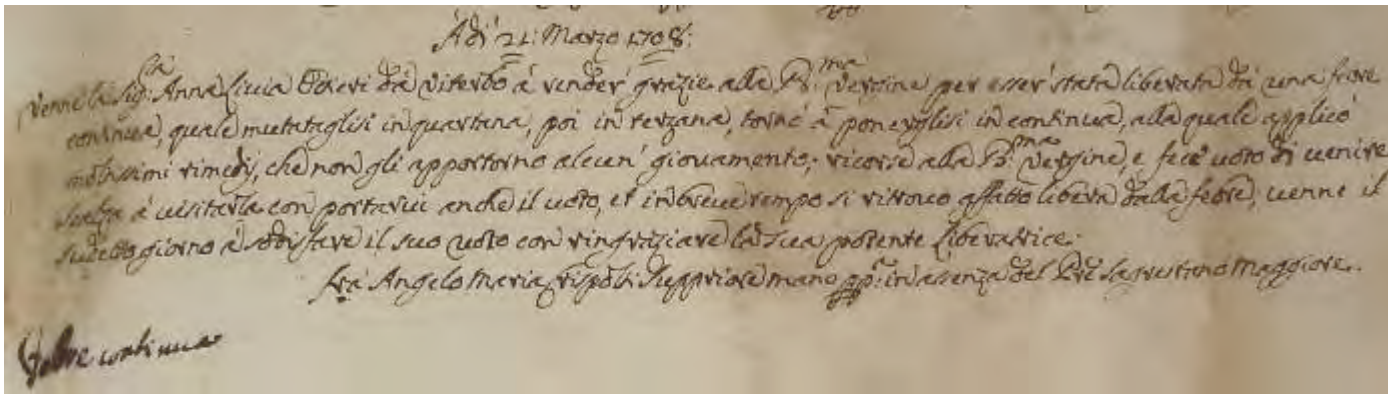 Adi 21: Marzo 1708:
Venne la Sig:ra Anna Livia da Viterbo à render grazie alla B:ma Vergine per esser stata liberata da una febre
continua, quale mutataglisi in quartana, poi in terzana, tornò à ponerglisi in continua, alla quale applicò
moltissimi rimedij, che non gli apportorno alcun' giovamento; ricorse alla B:ma Vergine, e fece voto di venire
scalza à visitarla con portarvi anche il voto, et in breve tempo si ritrovò affatto libera dalla febre, venne il
sudetto giorno à sodisfare il suo voto con ringraziare la sua potente liberatrice.
fra Angelo Maria Crispolti Suppriore mano pp:a in assenza del Pre Sacrestano Maggiore.
Febre continua